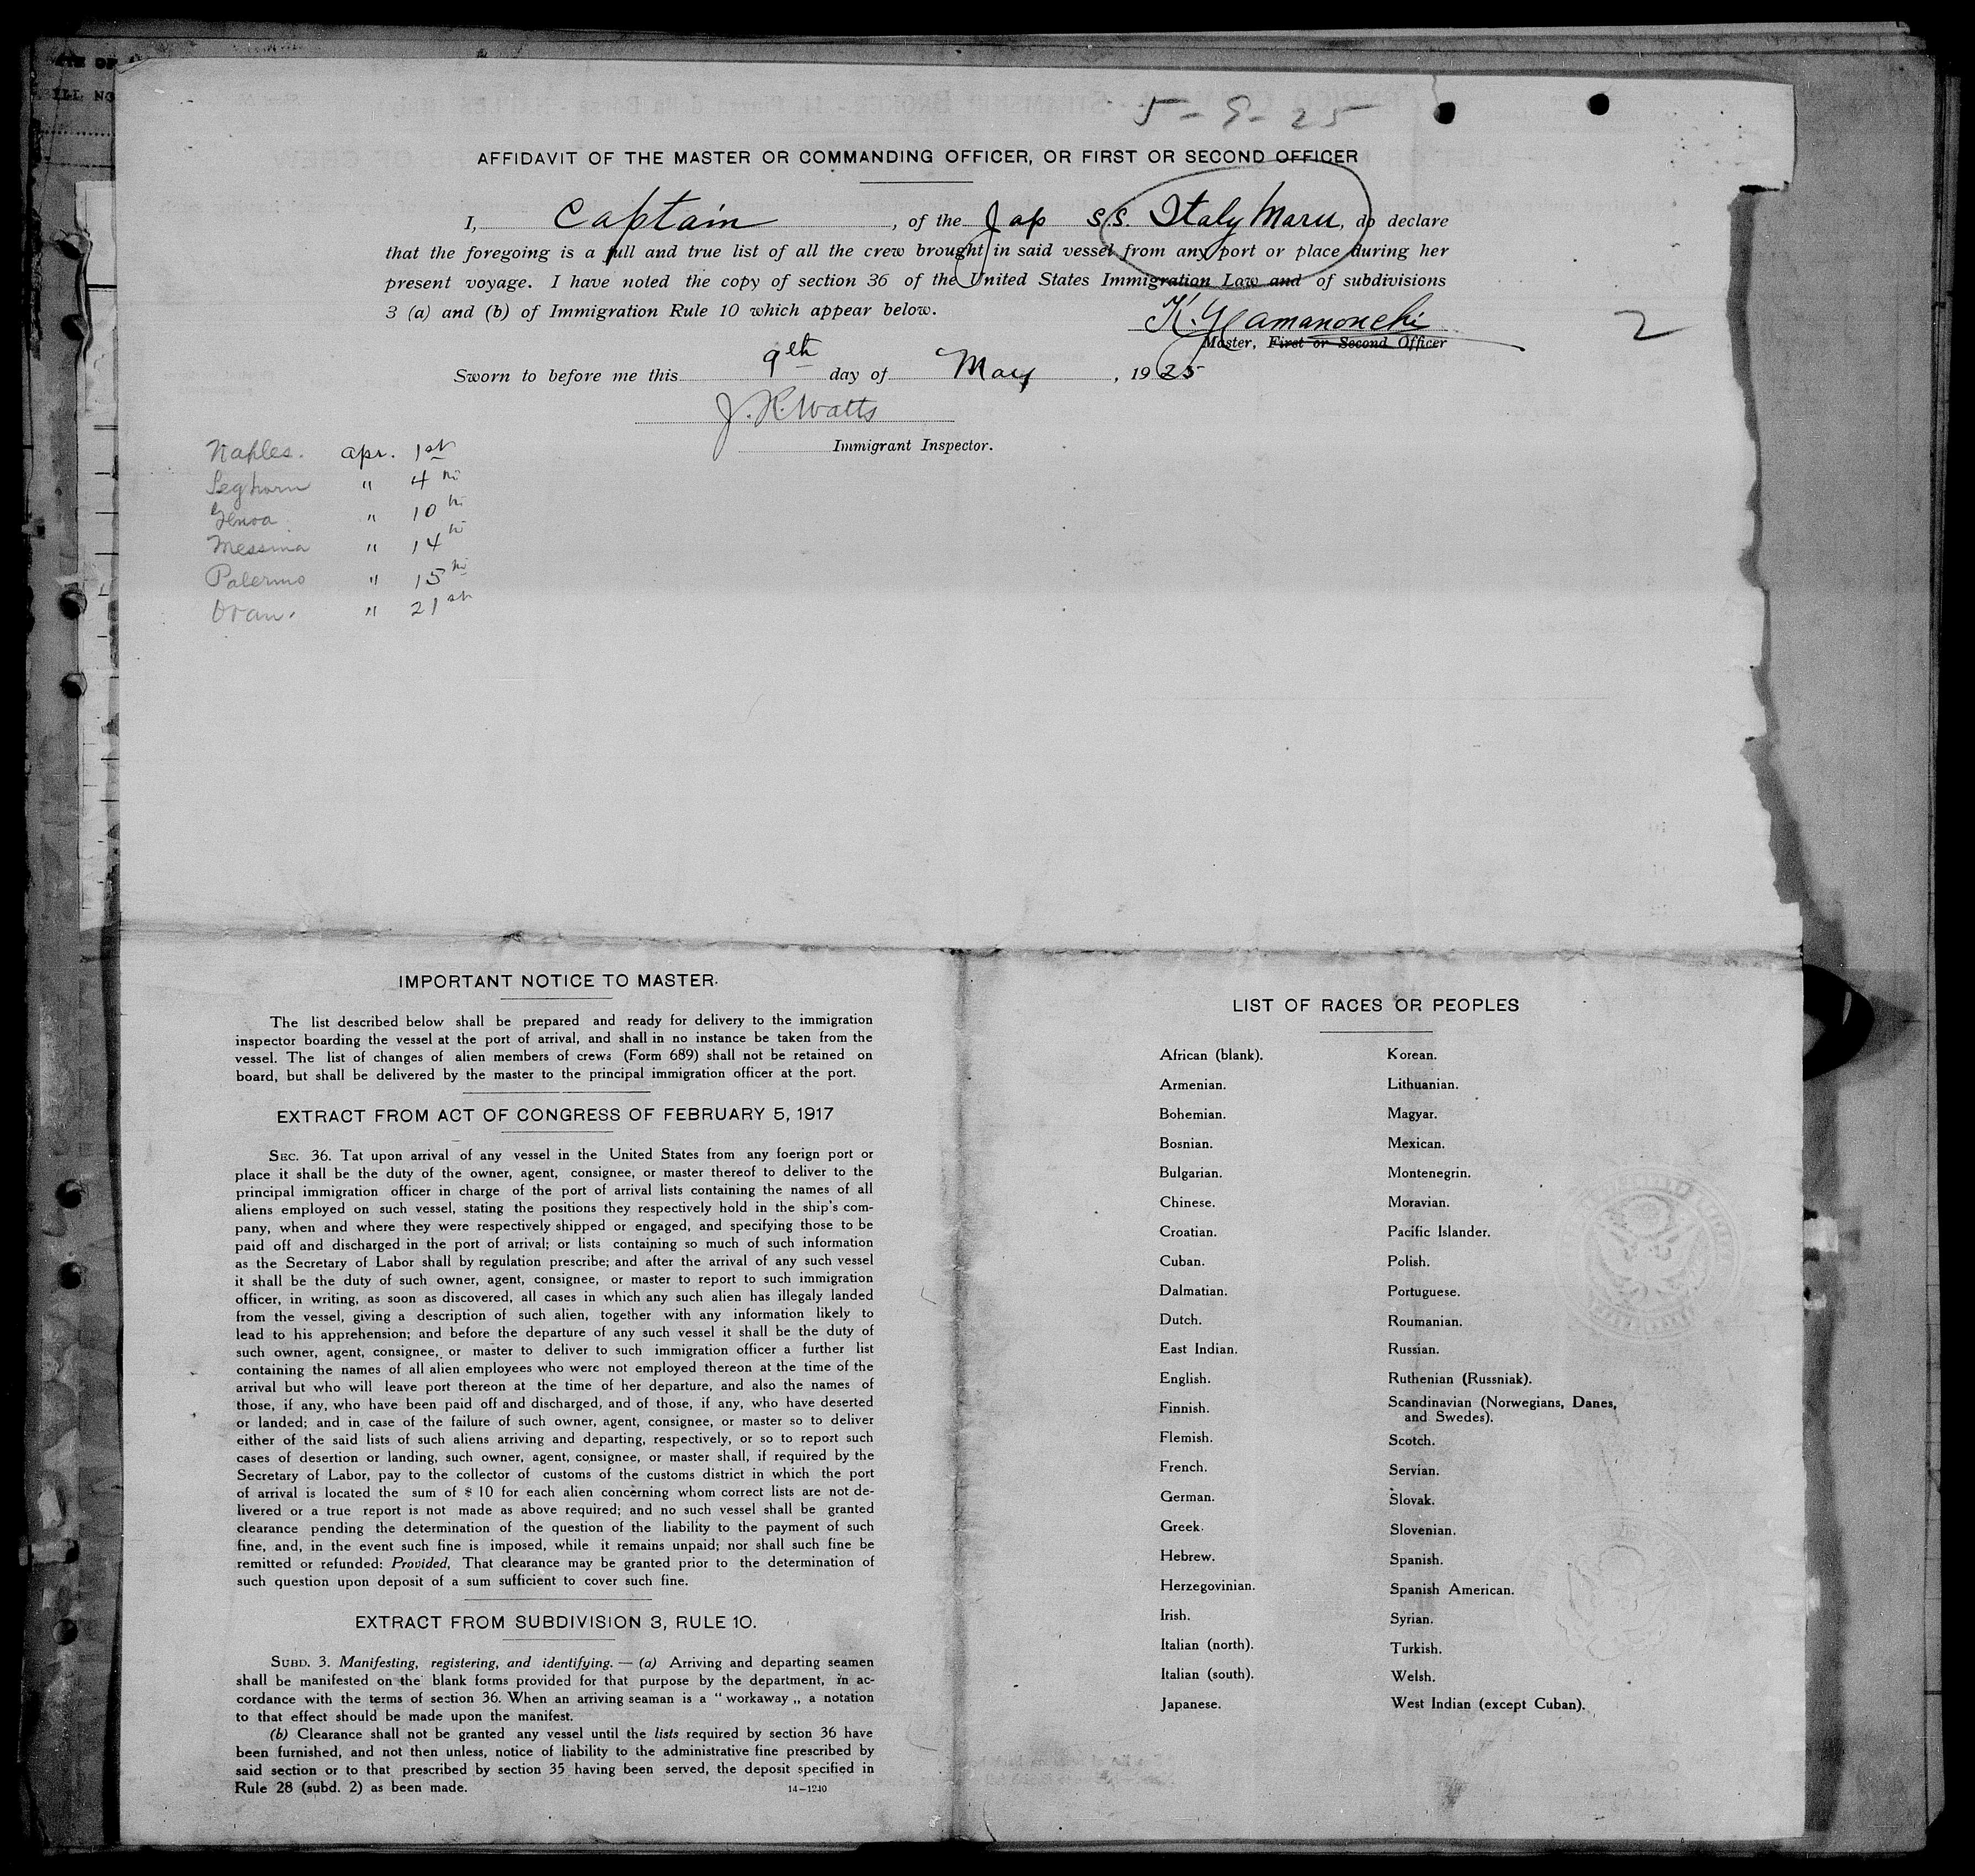 5-9-25
AFFIDAVIT OF THE MASTER OR COMMANDING OFFICER, OR FIRST OR SECOND OFFICER
I, Captain, of the Jap S.S. Italy Maru, do declare
that the foregoing is a full and true list of all the crew brought in said vessel from any port or place during her
present voyage. I have noted the copy of section 36 of the United States Immigration Law and of subdivisions
3 (a) and (b) of Immigration Rule 10 which appear below.
K. Yamanouchi
2
Master, First or Second Officer
Sworn to before me this 9th day of May, 1925
J. R. Watts
Immigrant Inspector.
Naples. Apr. 1st
Leghorn " 4th
Genoa " 10th
Messina " 14th
Palermo " 15th
Oran. " 21st
IMPORTANT NOTICE TO MASTER.
The list described below shall be prepared and ready for delivery to the immigration
inspector boarding the vessel at the port of arrival, and shall in no instance be taken from the
vessel. The list of changes of alien members of crews (Form 689) shall not be retained on
board, but shall be delivered by the master to the principal immigration officer at the port.
EXTRACT FROM ACT OF CONGRESS OF FEBRUARY 5, 1917
SEC. 36. Tat upon arrival of any vessel in the United States from any foerign port or
place it shall be the duty of the owner, agent, consignee, or master thereof to deliver to the
principal immigration officer in charge of the port of arrival lists containing the names of all
aliens employed on such vessel, stating the positions they respectively hold in the ship's com-
pany, when and where they were respectively shipped or engaged, and specifying those to be
paid off and discharged in the port of arrival; or lists containing so much of such information
as the Secretary of Labor shall by regulation prescribe; and after the arrival of any such vessel
it shall be the duty of such owner, agent, consignee, or master to report to such immigration
officer, in writing, as soon as discovered, all cases in which any such alien has illegaly landed
from the vessel, giving a description of such alien, together with any information likely to
lead to his apprehension; and before the departure of any such vessel it shall be the duty of
such owner, agent, consignee, or master to deliver to such immigration officer a further list
containing the names of all alien employees who were not employed thereon at the time of the
arrival but who will leave port thereon at the time of her departure, and also the names of
those, if any, who have been paid off and discharged, and of those, if any, who have deserted
or landed; and in case of the failure of such owner, agent, consignee, or master so to deliver
either of the said lists of such aliens arriving and departing, respectively, or so to report such
cases of desertion or landing, such owner, agent, consignee, or master shall, if required by the
Secretary of Labor, pay to the collector of customs of the customs district in which the port
of arrival is located the sum of $ 10 for each alien concerning whom correct lists are not de-
livered or a true report is not made as above required; and no such vessel shall be granted
clearance pending the determination of the question of the liability to the payment of such
fine, and, in the event such fine is imposed, while it remains unpaid; nor shall such fine be
remitted or refunded: Provided, That clearance may be granted prior to the determination of
such question upon deposit of a sum sufficient to cover such fine.
EXTRACT FROM SUBDIVISION 3, RULE 10.
SUBD. 3. Manifesting, registering, and identifying. — (a) Arriving and departing seamen
shall be manifested on the blank forms provided for that purpose by the department, in ac-
cordance with the terms of section 36. When an arriving seaman is a " workaway „ a notation
to that effect should be made upon the manifest.
(b) Clearance shall not be granted any vessel until the lists required by section 36 have
been furnished, and not then unless, notice of liability to the administrative fine prescribed by
said section or to that prescribed by section 35 having been served, the deposit specified in
Rule 28 (subd. 2) as been made. 14-1240
LIST OF RACES OR PEOPLES
African (blank). Korean.
Armenian. Lithuanian.
Bohemian. Magyar.
Bosnian. Mexican.
Bulgarian. Montenegrin.
Chinese. Moravian.
Croatian. Pacific Islander.
Cuban. Polish.
Dalmatian. Portuguese.
Dutch. Roumanian.
East Indian. Russian.
English. Ruthenian (Russniak).
Finnish. Scandinavian (Norwegians, Danes,
and Swedes).
Flemish. Scotch.
French. Servian.
German. Slovak.
Greek. Slovenian.
Hebrew. Spanish.
Herzegovinian. Spanish American.
Irish. Syrian.
Italian (north). Turkish.
Italian (south). Welsh.
Japanese. West Indian (except Cuban).